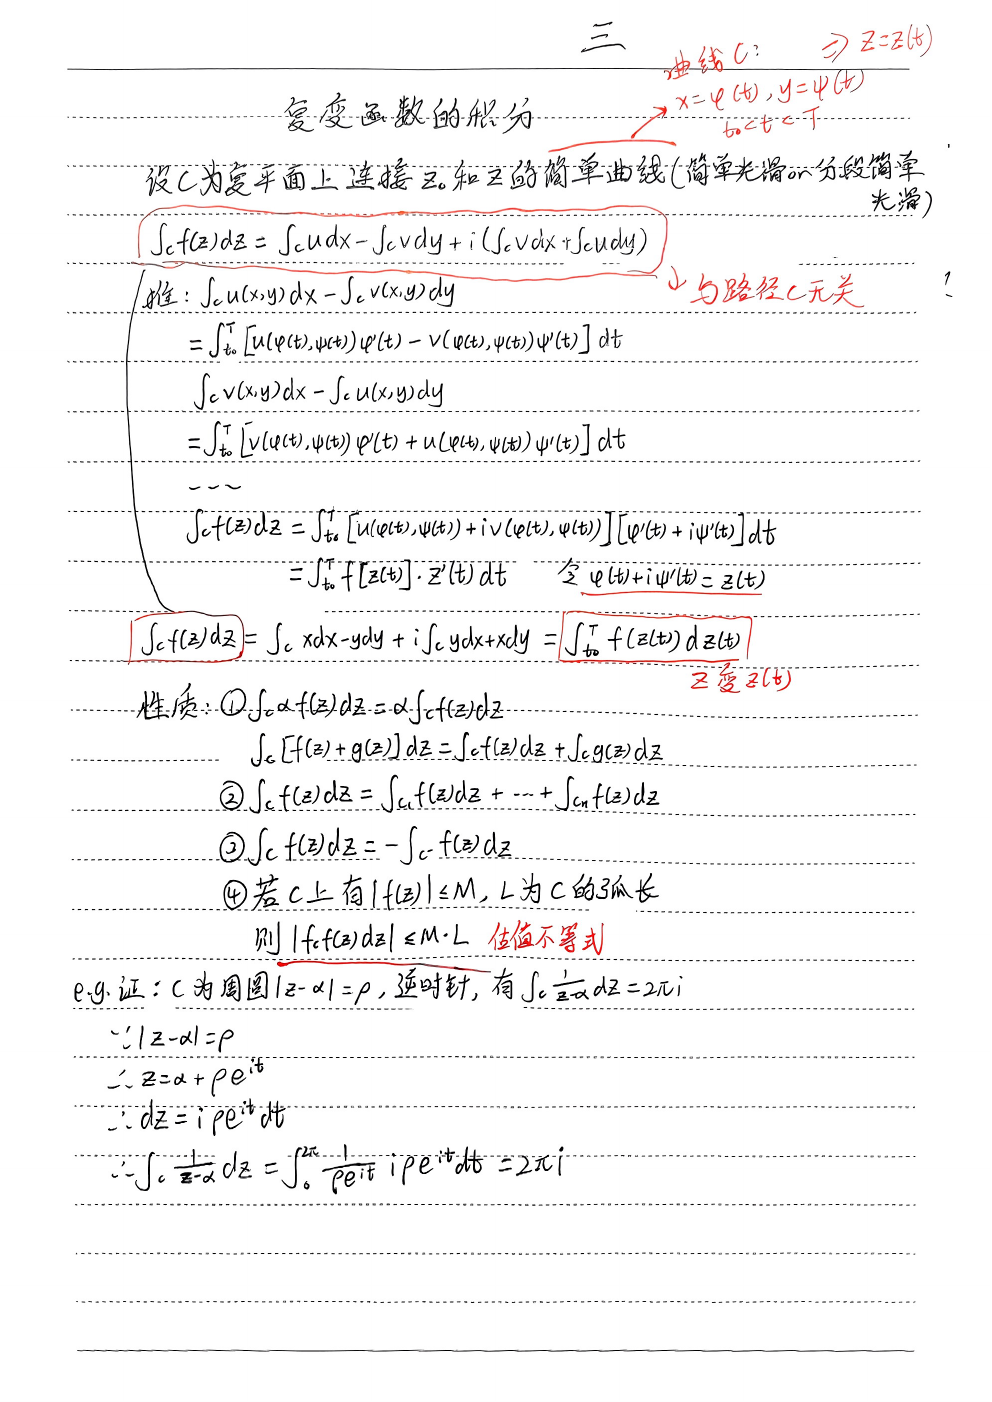 三
曲线C: ⇒ z=z(t)
x=φ(t), y=ψ(t)
t₀<t<T
复变函数的积分
设C为复平面上连接z₀和z的简单曲线(简单光滑or分段简单
光滑)
∫_C f(z)dz = ∫_C udx − ∫_C vdy + i(∫_C vdx + ∫_C udy)
↓与路径C无关
推: ∫_C u(x,y)dx − ∫_C v(x,y)dy
= ∫_{t₀}^T [u(φ(t),ψ(t))φ'(t) − v(φ(t),ψ(t))ψ'(t)]dt
∫_C v(x,y)dx − ∫_C u(x,y)dy
= ∫_{t₀}^T [v(φ(t),ψ(t))φ'(t) + u(φ(t),ψ(t))ψ'(t)]dt
---
∫_C f(z)dz = ∫_{t₀}^T [u(φ(t),ψ(t)) + iv(φ(t),ψ(t))][φ'(t) + iψ'(t)]dt
= ∫_{t₀}^T f[z(t)]·z'(t)dt 令 φ(t)+iψ'(t)=z(t)
∫_C f(z)dz = ∫_C xdx−ydy + i∫_C ydx+xdy = ∫_{t₀}^T f(z(t))dz(t)
z变z(t)
性质: ①∫_C αf(z)dz = α∫_C f(z)dz
∫_C [f(z)+g(z)]dz = ∫_C f(z)dz + ∫_C g(z)dz
②∫_C f(z)dz = ∫_{C₁} f(z)dz + ··· + ∫_{Cn} f(z)dz
③∫_C f(z)dz = −∫_{C⁻} f(z)dz
④若C上有|f(z)|≤M, L为C的弧长
则|∫_C f(z)dz|≤M·L 估值不等式
e.g.证: C为周圆|z−α|=ρ, 逆时针, 有∫_C 1/(z−α) dz=2πi
∵|z−α|=ρ
∴z=α+ρe^{it}
∴dz=iρe^{it}dt
∴∫_C 1/(z−α) dz = ∫_0^{2π} 1/(ρe^{it}) iρe^{it}dt = 2πi